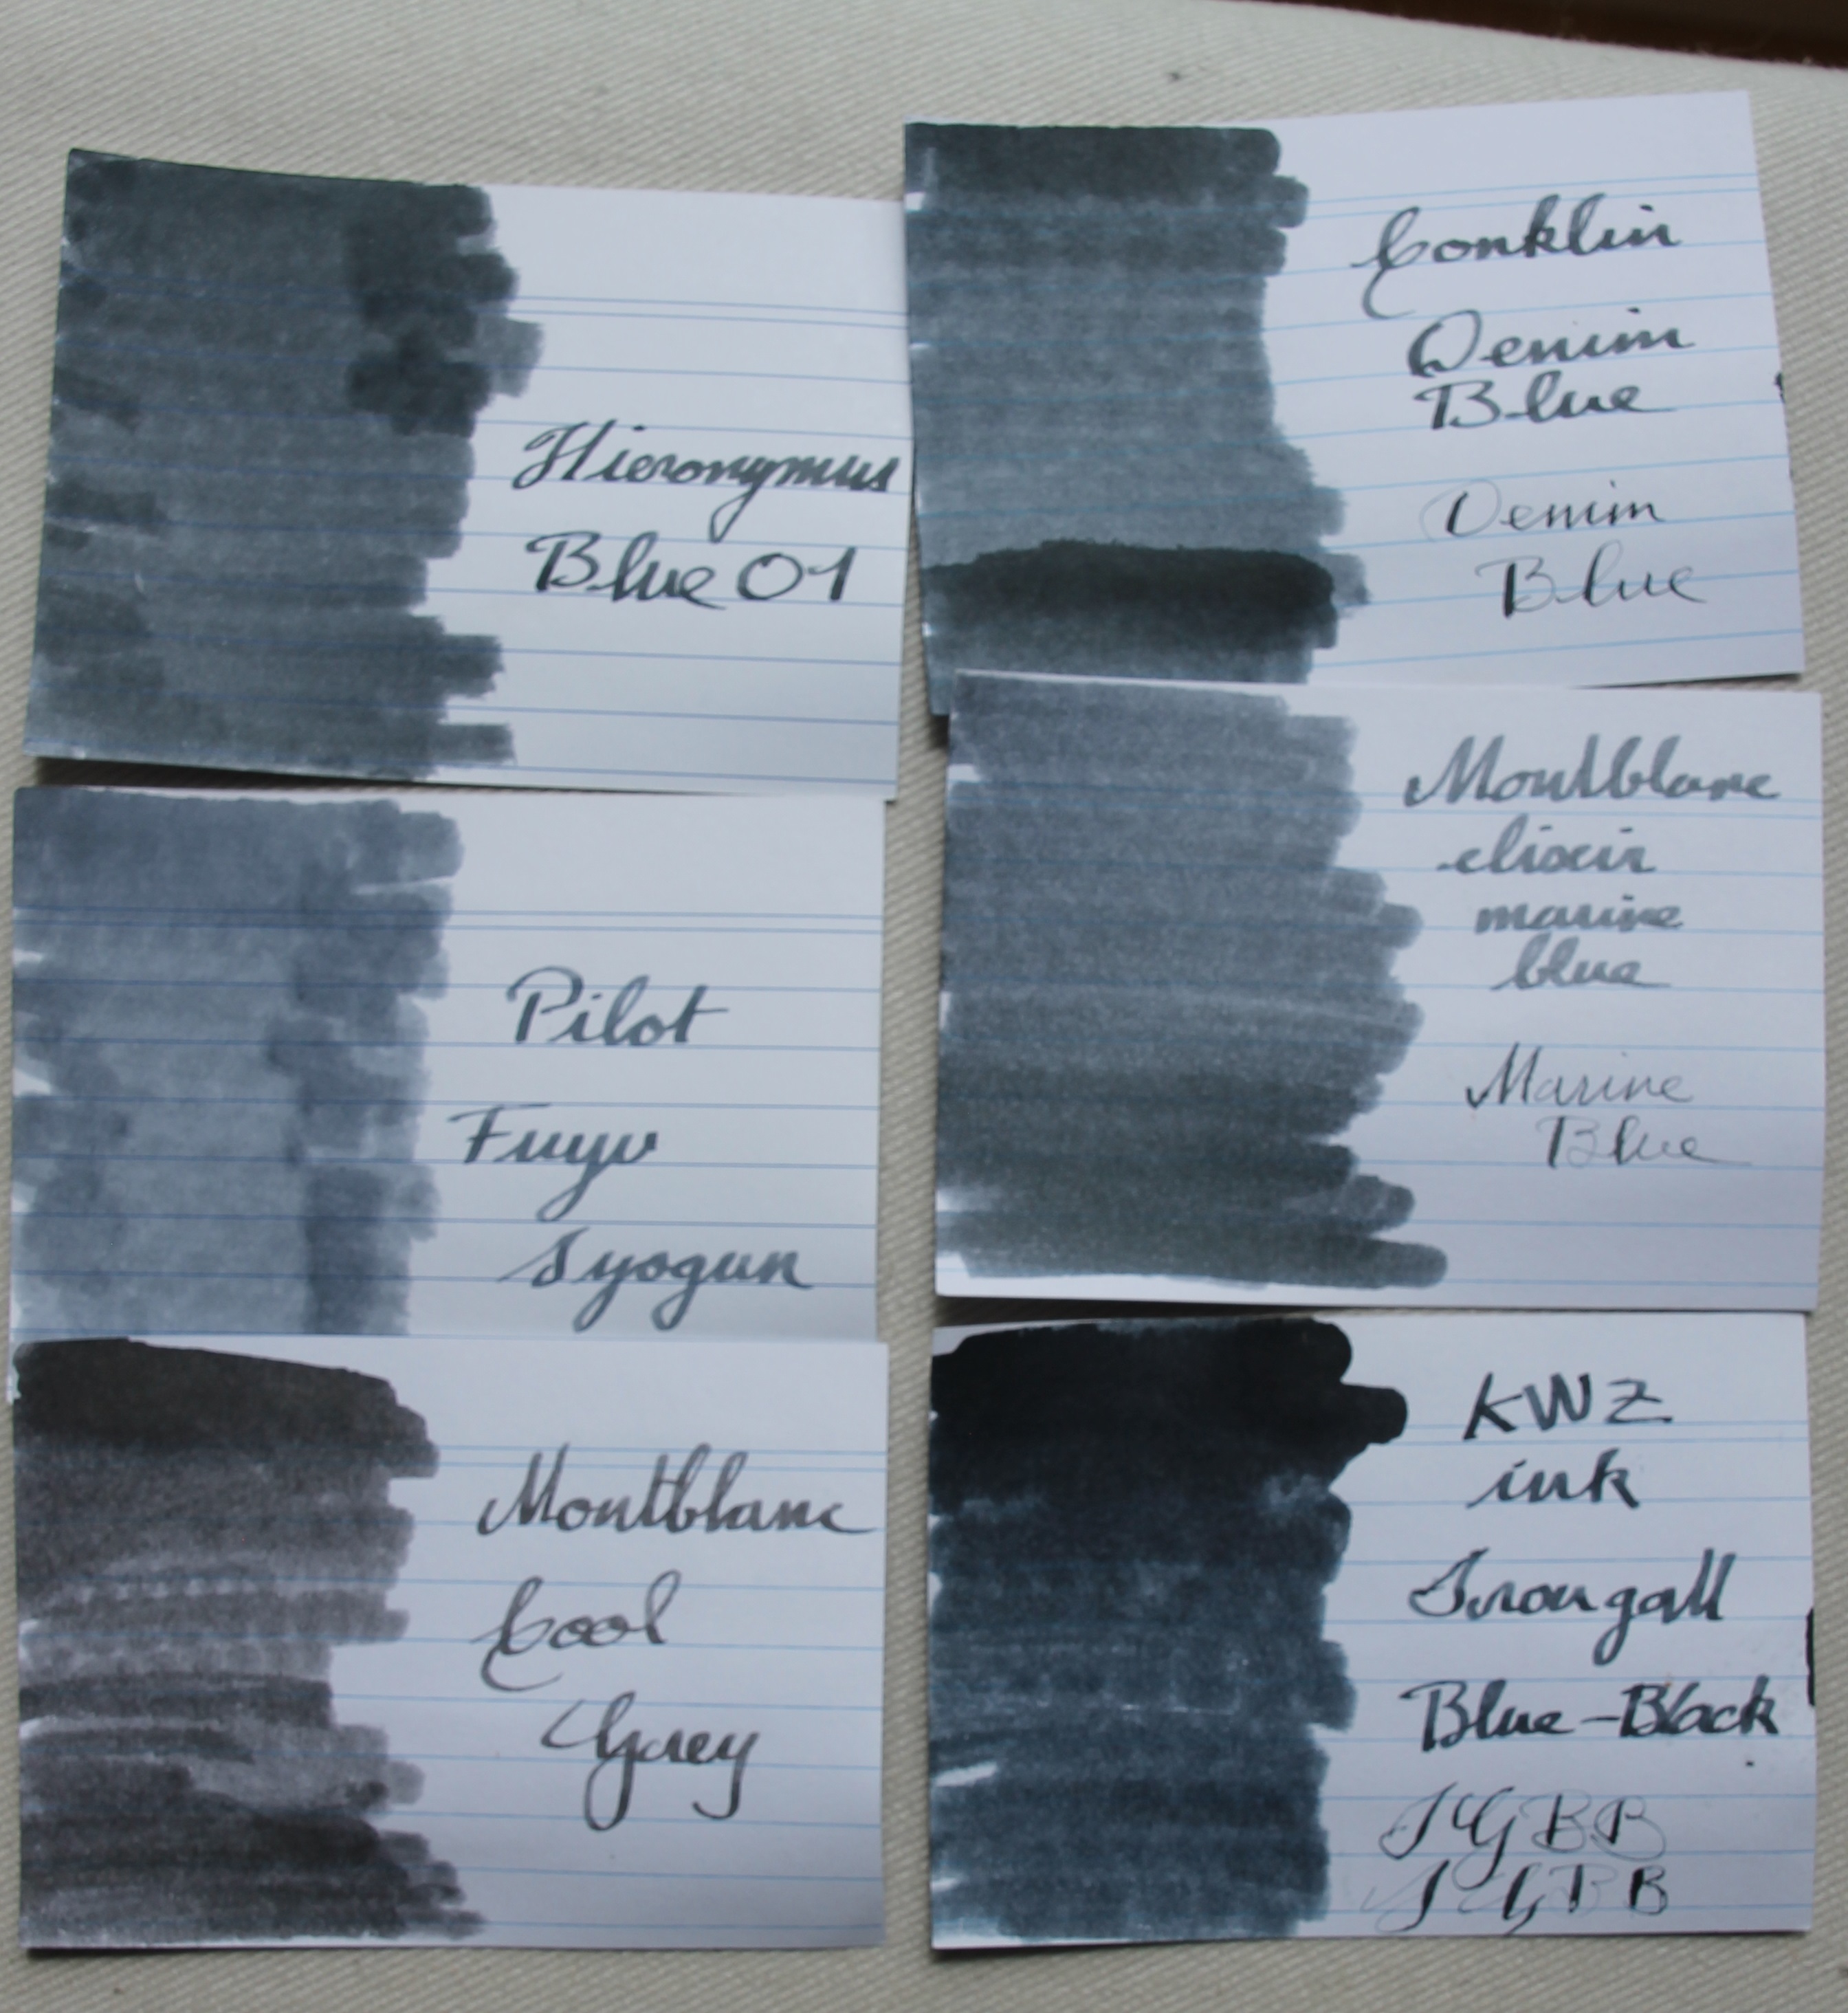 Hieronymus
Blue 01
Conklin
Denim
Blue
Denim
Blue
Pilot
Fuyu
Syogun
Montblanc
elixir
marine
blue
Marine
Blue
Montblanc
Cool
Grey
KWZ
ink
Iron gall
Blue-Black
IGBB
IGBB